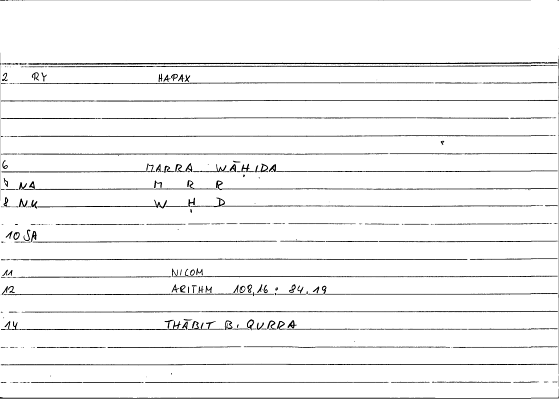 2 RY HAPAX
6 MARRA WĀḤIDA
7 NA M R R
8 NU W Ḥ D
10 SA
11 NICOM
12 ARITHM 108,16 : 84.19
14 THĀBIT B. QURRA